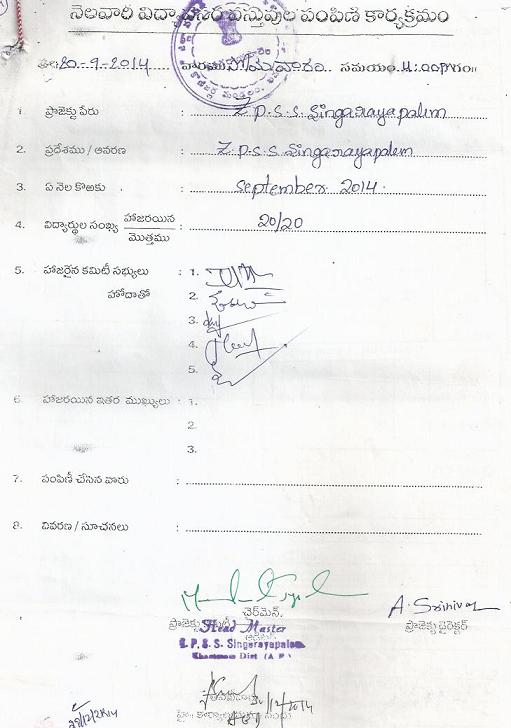 నెలవారి విద్యావసర వస్తువుల పంపిణి కార్యక్రమం
20-9-2014 వారము సోమవారం సమయం 4:00PM గం॥
1. ప్రాజెక్టు పేరు : Z.P.S.S. Singarayapalem
2. ప్రదేశము / ఆవరణ : Z.P.S.S. Singarayapalem
3. ఏ నెల కొఱకు : September 2014.
4. విద్యార్థుల సంఖ్య హాజరయిన / మొత్తము : 20/20
5. హాజరైన కమిటీ సభ్యులు : 1.
హోదాతో 2.
3.
4.
5.
6. హాజరయిన ఇతర ముఖ్యులు : 1.
2.
3.
7. పంపిణీ చేసిన వారు :
8. వివరణ / సూచనలు :
A. Srinivas
చైర్‌మెన్.
ప్రాజెక్టు కమిటీ ప్రాజెక్టు డైరెక్టర్
Head Master
Z. P. S. S. Singarayapalem
Khammam Dist (A.P)
30/12/2014
29/12/2014